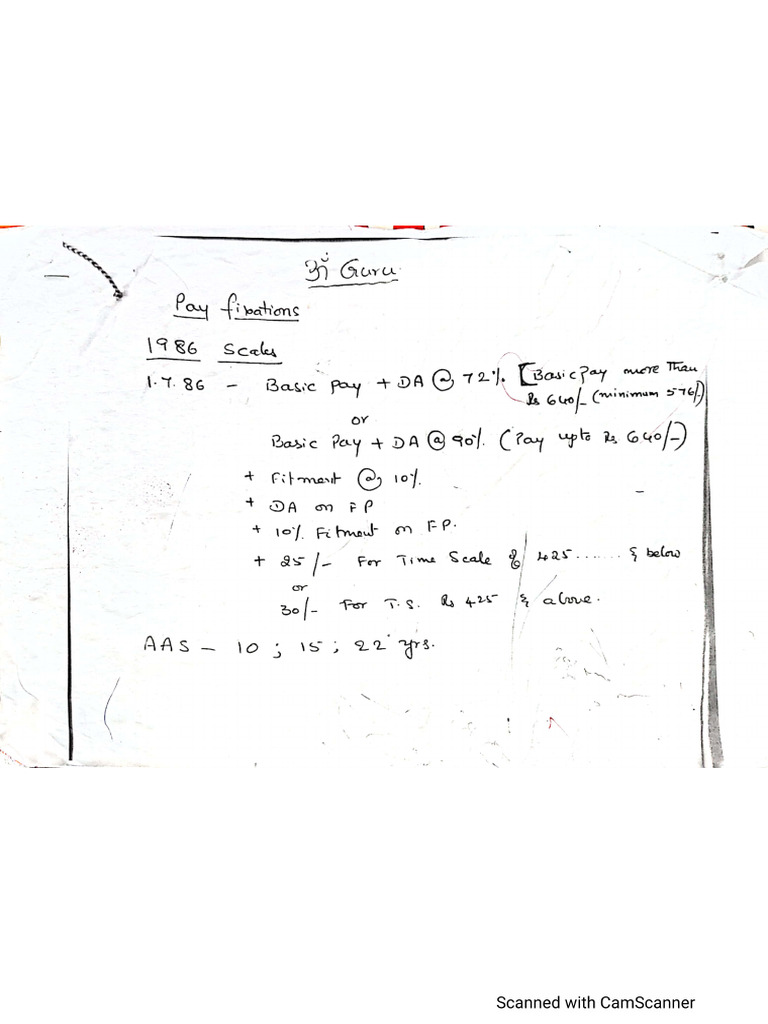 ॐ Guru
Pay fixations
1986 Scales
1.7.86 - Basic pay + DA @ 72%. [Basic Pay more Than
Rs 640/- (minimum 576/-)
or
Basic Pay + DA @ 90%. (Pay upto Rs 640/-)
+ Fitment @ 10%.
+ DA on FP
+ 10% Fitment on FP.
+ 25/- For Time Scale of 425....... & below
or
30/- For T.S. Rs 425 & above.
AAS - 10 ; 15 ; 22 yrs.
Scanned with CamScanner